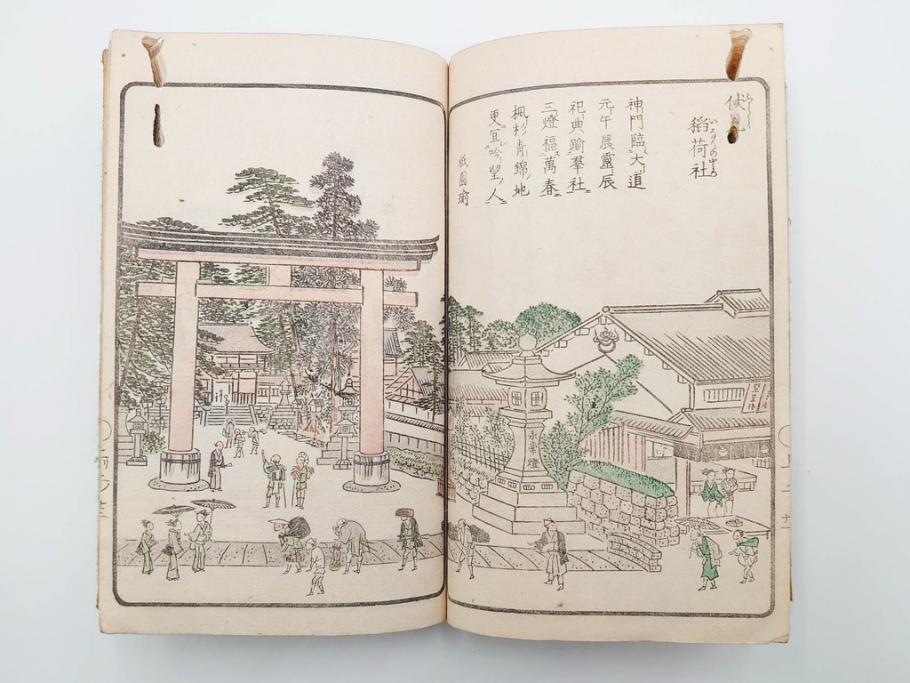 伏見
稲荷社
神門臨大道
元午展靈辰
祀典踰羣社
三燈福萬春
楓杉青錦地
更宜吟望人
祇園瑜
燈